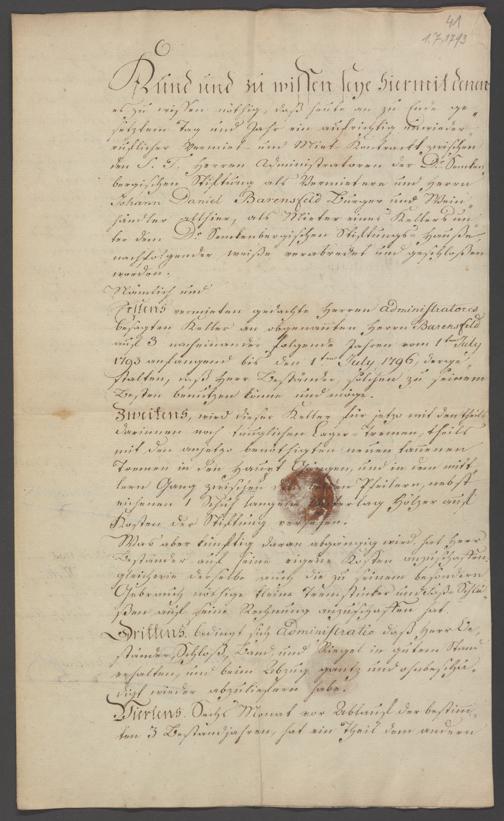 41
1.7.1793
Kund und zu wissen seye hiermit denen
es zu wissen nöthig, daß heute an zu Ende ge-
setztem Tag und Jahr ein aufrichtig unwieder-
ruflicher Vermiet- und Miet-Kontrackt zwischen
den S. T. Herren Administratoren der Dr. Sencken-
bergischen Stiftung als Vermietere und Herrn
Johann Daniel Barensfeld Bürger und Wein-
händler allhier, als Mieter eines Kellers un-
ter dem Dr. Senckenbergischen Stiftungs-Hause
nachfolgender weise verabredet und geschloßen
worden.
Nämlich und
Erstens vermieten gedachte Herren Administratores
besagten Keller an obgenannten Herrn Barensfeld
auf 3 nacheinander folgende Jahren vom 1ten July
1793 anfangend bis den 1ten July 1796, derge-
stalten, daß Herr Beständer solchen zu seinem
Besten benützen könne und möge.
Zweitens, wird dieser Keller für jetzo mit den theils
darinnen noch tauglichen Lager-Tremen, theils
mit den anjetzo benöthigten neuen tannenen
Tremen in den Haupt Gängen, und in dem mitt-
lern Gang zwischen Pfeilern, nebst
eichenen 1 Schuh langen Hölzer auf
Kosten der Stiftung versehen.
Was aber künftig daran abgängig wird, hat Herr
Beständer auf seine eigene Kosten anzuschaffen,
gleichwie derselbe auch die zu seinem besondern
Gebrauch nöthige kleine
auf seine Rechnung anzuschaffen hat.
Drittens, bedingt sich Administratio daß Herr Be-
ständer, Schloß, Band, und Riegel in gutem Stand
erhalten, und beim Abzug gantz und ohnbeschä-
digt wieder abzuliefern habe.
Viertens. Sechs Monat vor Ablauf der bestim-
ten 3 Bestandjahren, hat ein Theil dem andern